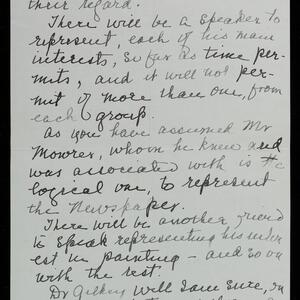 their regard.
There will be a speaker to
represent, each of his main
interests, so far as time per-
mits, and it will not per-
mit of more than one, from
each group.
As you have assumed Mr
Mowrer, whom he knew and
was associated with is the
logical one, to represent
the Newspaper.
There will be another friend
to speak representing his inter
est in painting - and so on
with the rest.
Dr Gilkey will I am sure, in